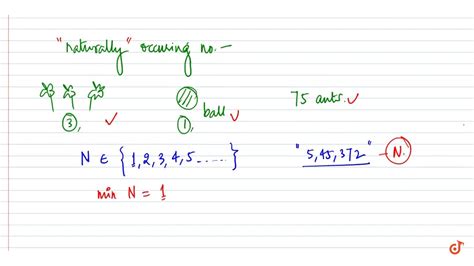 "Naturally" occuring no. -
③, ✓ ①, ball ✓ 75 ants. ✓
N ∈ {1, 2, 3, 4, 5 .......} "5,45,372" - N.
min N = 1